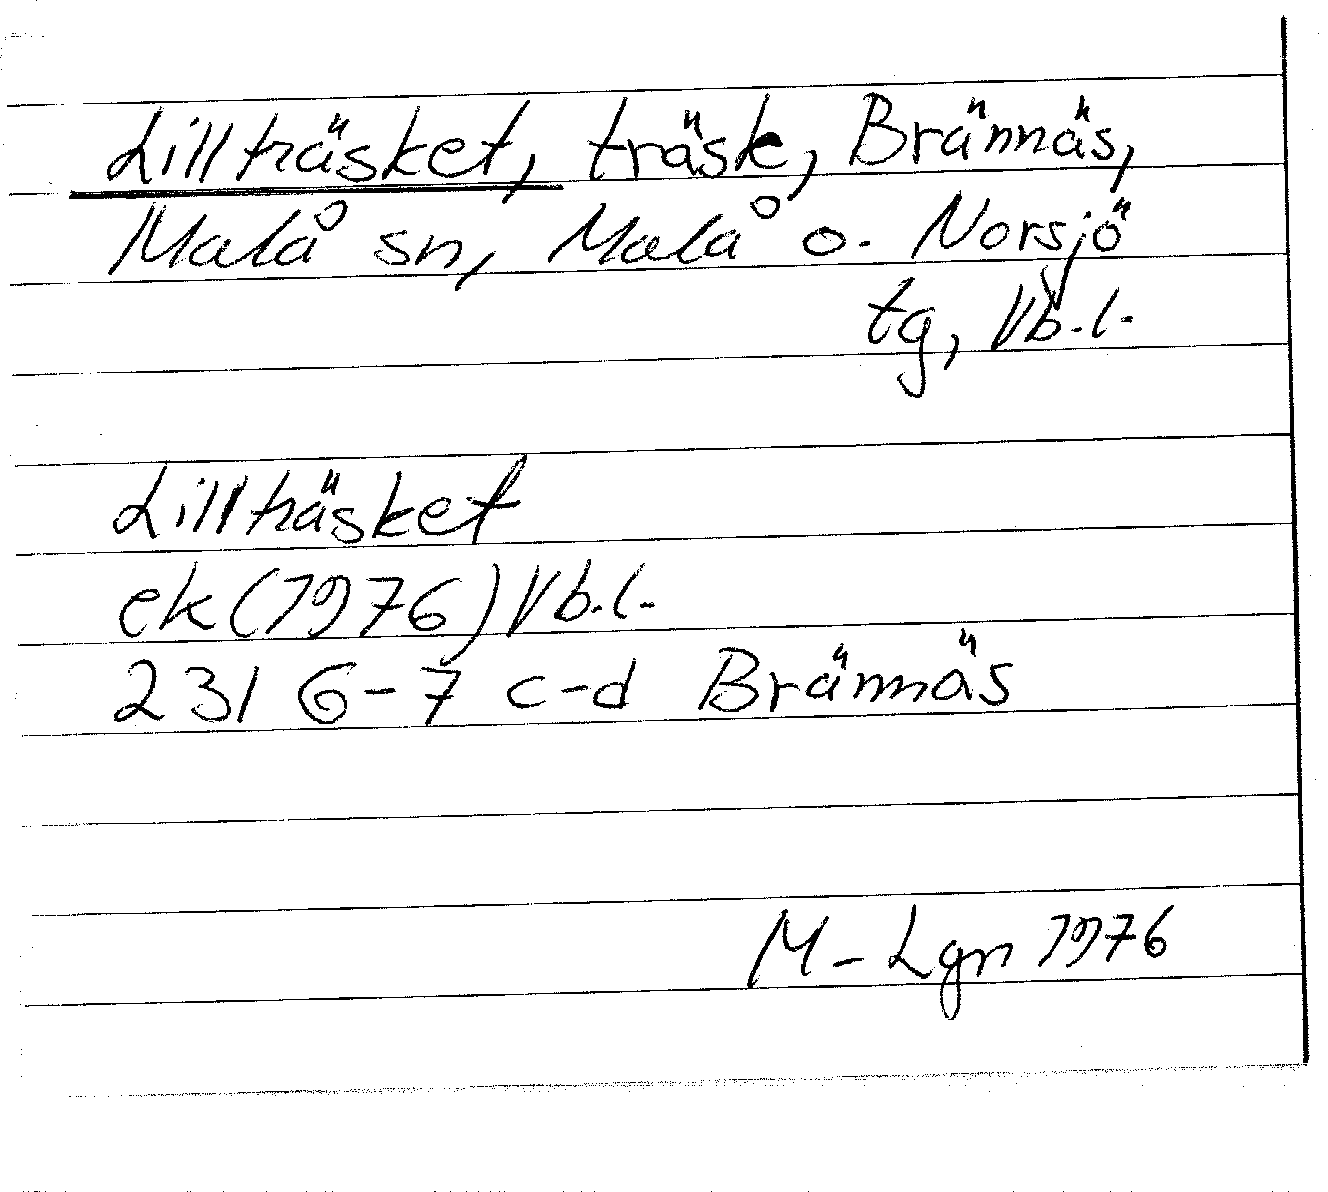 Lillträsket, träsk, Brännäs,
Malå sn, Malå o. Norsjö
tg, Vb.l.
Lillträsket
ek(1976) Vb.l.
23I 6-7 c-d Brännäs
M-Lgn 1976